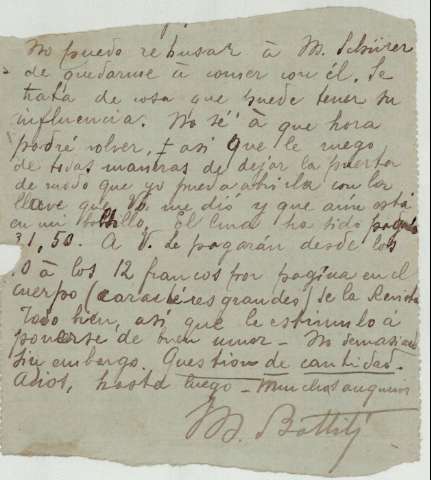 No puedo rehusar à M. Schürer
de quedarme à comer con él. Se
trata de cosa que puede tener su
influencia. No sé à que hora
podré volver, + asi que le ruego
de todas maneras de dejar la puerta
de modo que yo pueda abrirla con la
llave que V. me dió y que aún está
en mi bolsillo. El ha sido pagado
31,50. A V. le pagarán desde los
0 à los 12 francos por pagina en el
cuerpo (caractéres grandes) de la Revista
Todo bien, asi que le estimulo à
ponerse de buen umor. - No demasiado
sin embargo. Question de cantidad.
Adios, hasta luego - Muchos augurios
M.